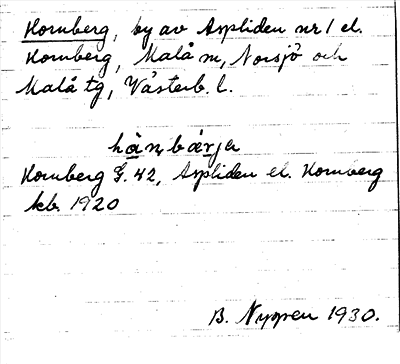 Hornberg, by av Aspliden nr 1 el.
Hornberg, Malå sn, Norsjö och
Malå tg, Västerb. l.
hänbärja
Hornberg G. 42, Aspliden el. Hornberg
kb. 1920
B. Nyppen 1930.